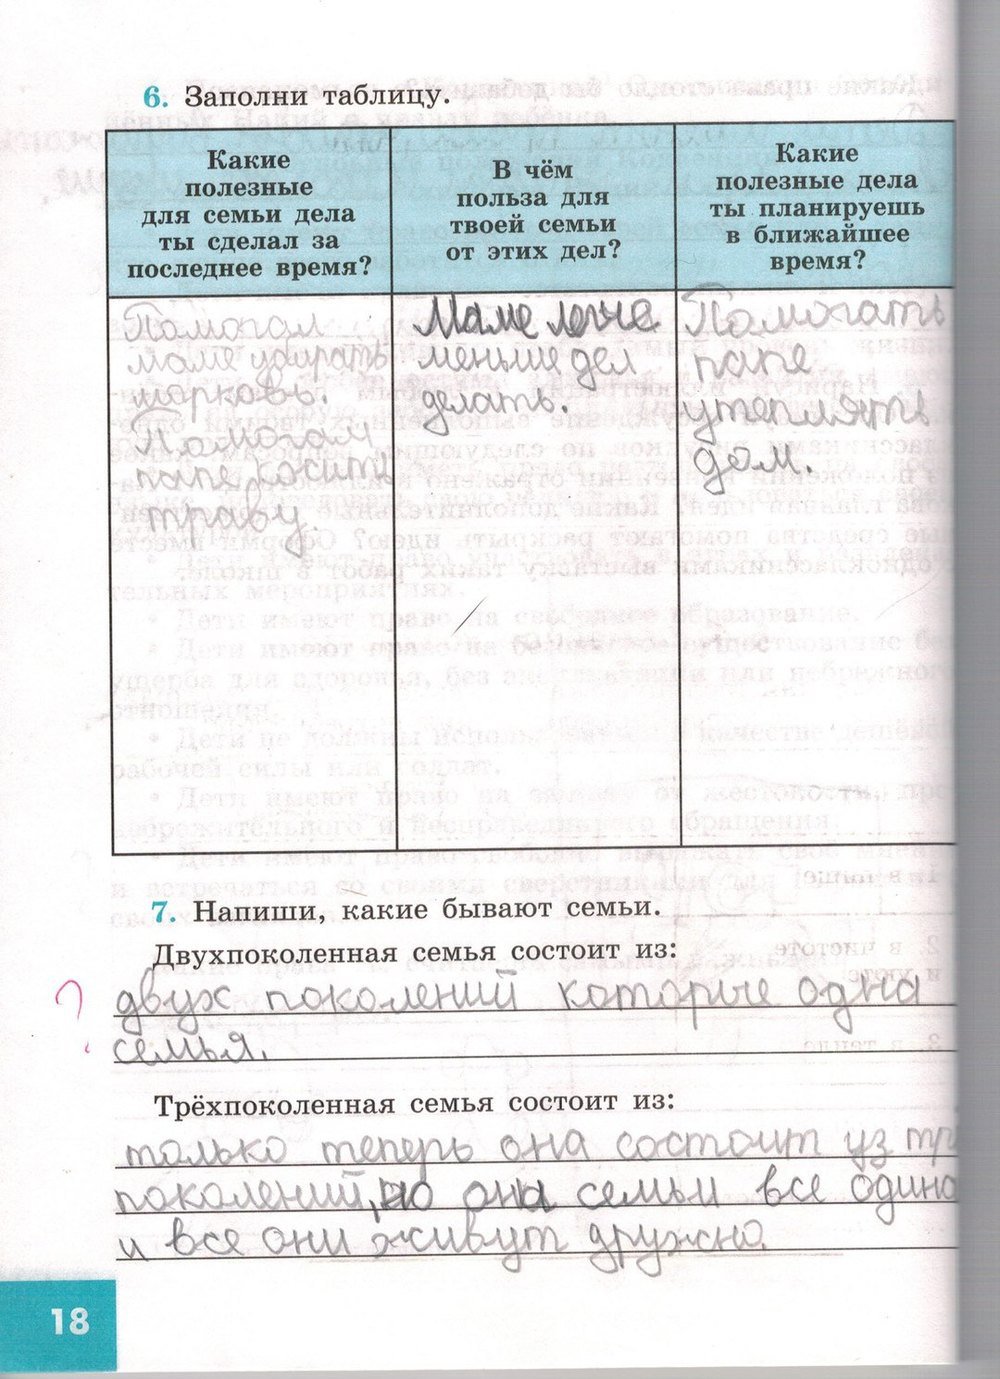 6. Заполни таблицу.
Какие
полезные
для семьи дела
ты сделал за
последнее время?
В чём
польза для
твоей семьи
от этих дел?
Какие
полезные дела
ты планируешь
в ближайшее
время?
Помогал
маме убирать
морковь.
Помогал
папе косить
траву.
Маме легче
меньше дел
делать.
Помогать
папе
утеплять
дом.
7. Напиши, какие бывают семьи.
Двухпоколенная семья состоит из:
?
двух поколений которые одна
семья.
Трёхпоколенная семья состоит из:
только теперь она состоит уз тр
поколений, но она семьи все одина
и все они живут дружно.
18